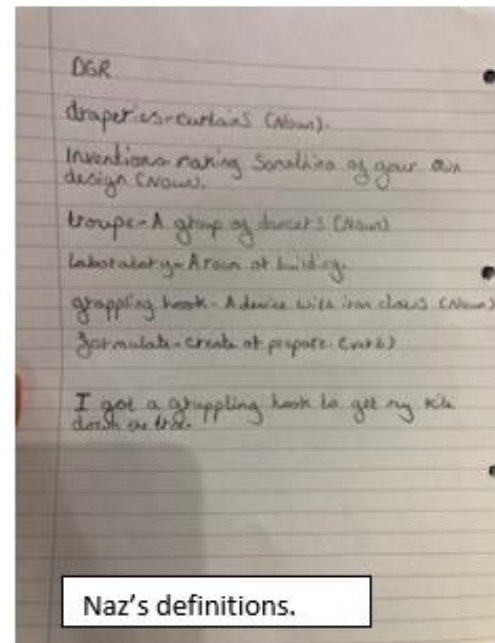 DGR
draperies-curtains (Noun).
Inventions-making Something of your own
design (Noun).
troupe-A group of dancers (Noun)
Laboratory-A room or building.
grappling hook-A device with iron claws (Noun)
formulate-create or prepare. (verb)
I got a grappling hook to get my kite
down tree.
Naz's definitions.